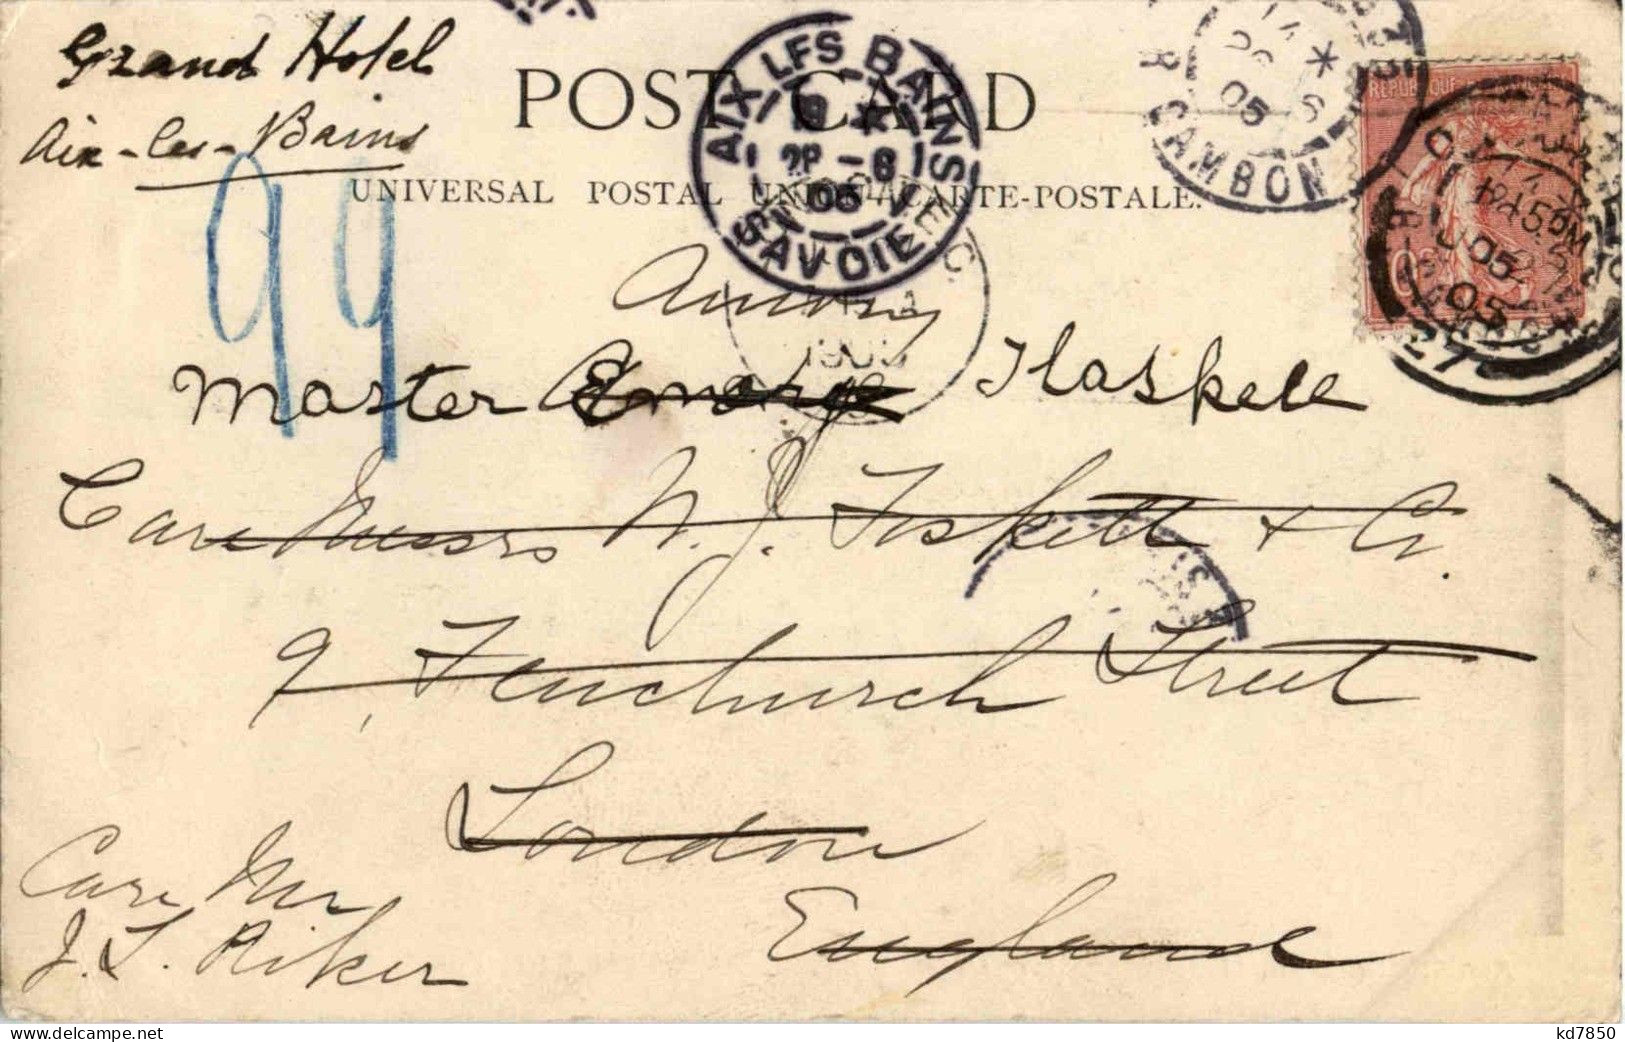 Grand Hotel
Aix-les-Bains
POST CARD
UNIVERSAL POSTAL UNION CARTE-POSTALE.
AIX LES BAINS
2P - 6
05
SAVOIE
R. CAMBON
05
REPUBLIQUE
99
Amory
Master Haskell
Care Messrs W. J. Fiskett & Co.
9, Fenchurch Street
London
England
Care Mr
J. L. Riker
kd7850